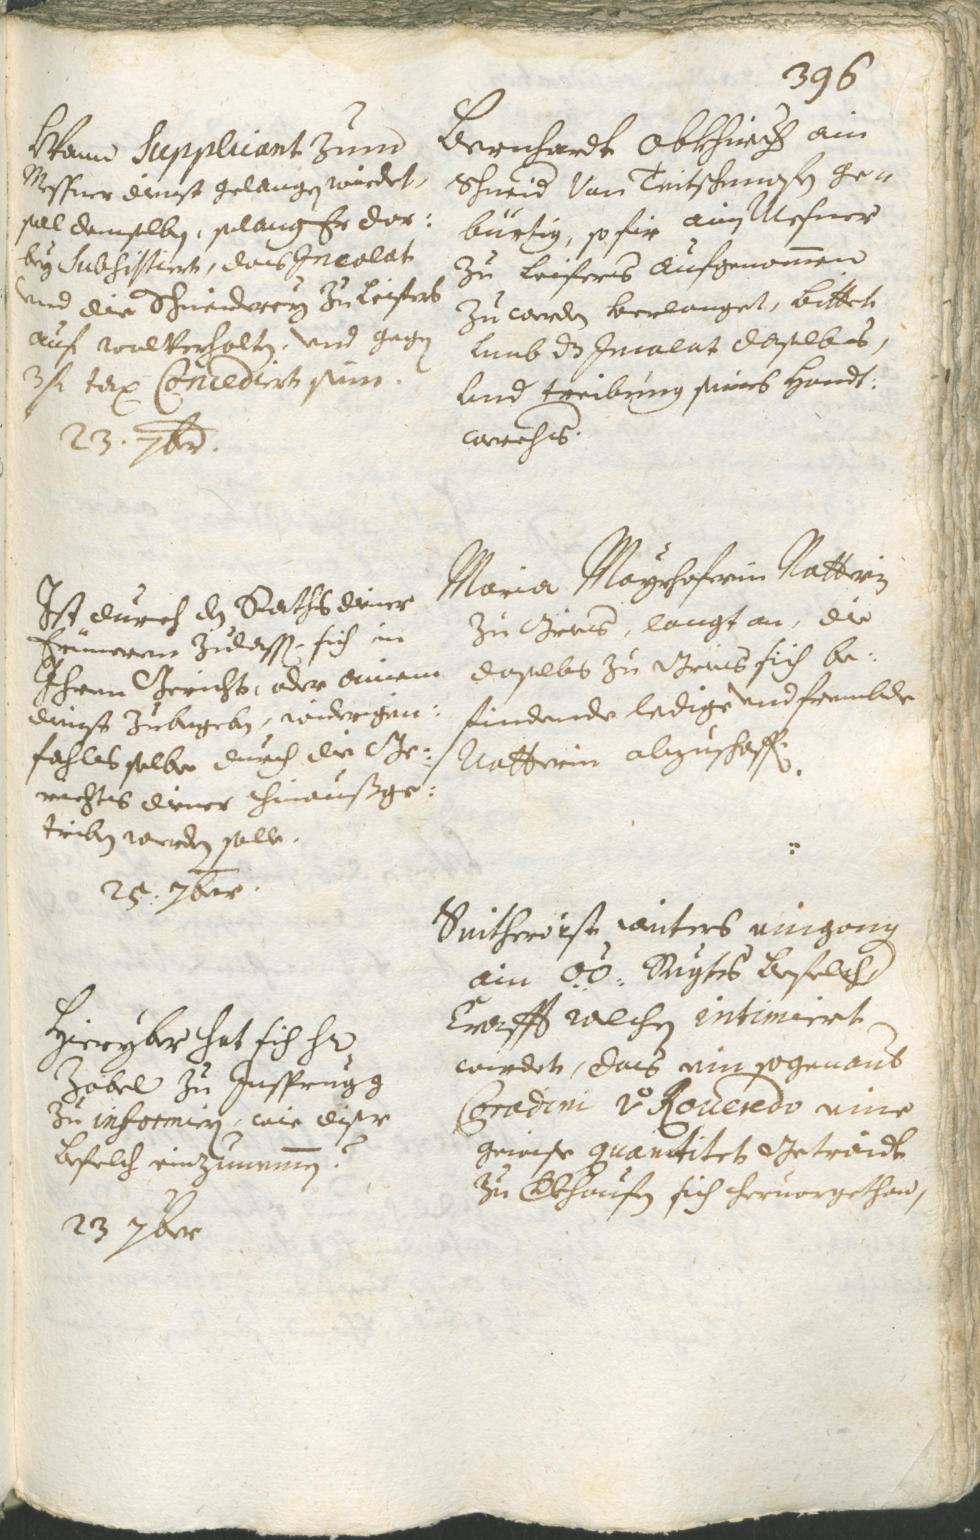 396
Wann Supplicant zum
Messner dienst gelangen wirdet,
soll demselben, solang Er dar:
bey Subsistiert, das Incolat
und die Schneiderey zu Leifers
auf wolverhalten, und gegen
3 fl tax Concediert sein.
23. 7ber.
Bernhardt Obkhirch ain
Schneid von Teitschnofen ge„
bürtig, so fir ain Mesner
zu Leifers aufgenommen
zu werden verlanget, bittet
umb dz Incolat daselbs,
und treibung seines Handt:
werchs.
Ist durch den Raths diener
erinnern zulassen sich in
Ihrem Gericht, oder ainem
dienst zubegeben, widerigen:
fahls selbe durch die Ge:
richts diener hinaußge:
triben werden solle.
25. 7ber.
Maria Mayrhoferin Natterin
zu Gries, langt an, die
daselbs zu Gries sich be:
findende ledige und frembde
Natterin abzuschaffen.
Hieryber hat sich hr
Zobel zu Insprugg
zu informiern, wie diser
Befelch einzunemmen?
23 7ber
Seithero ist weiters eingang
ain OÖ: Regts Befelch
Crafft welchen intimiert
wirdet, das ein sogenanter
Coradini vo Roueredo eine
gewise quantitet Getraidt
zu Erkhaufen sich hervorgethan,